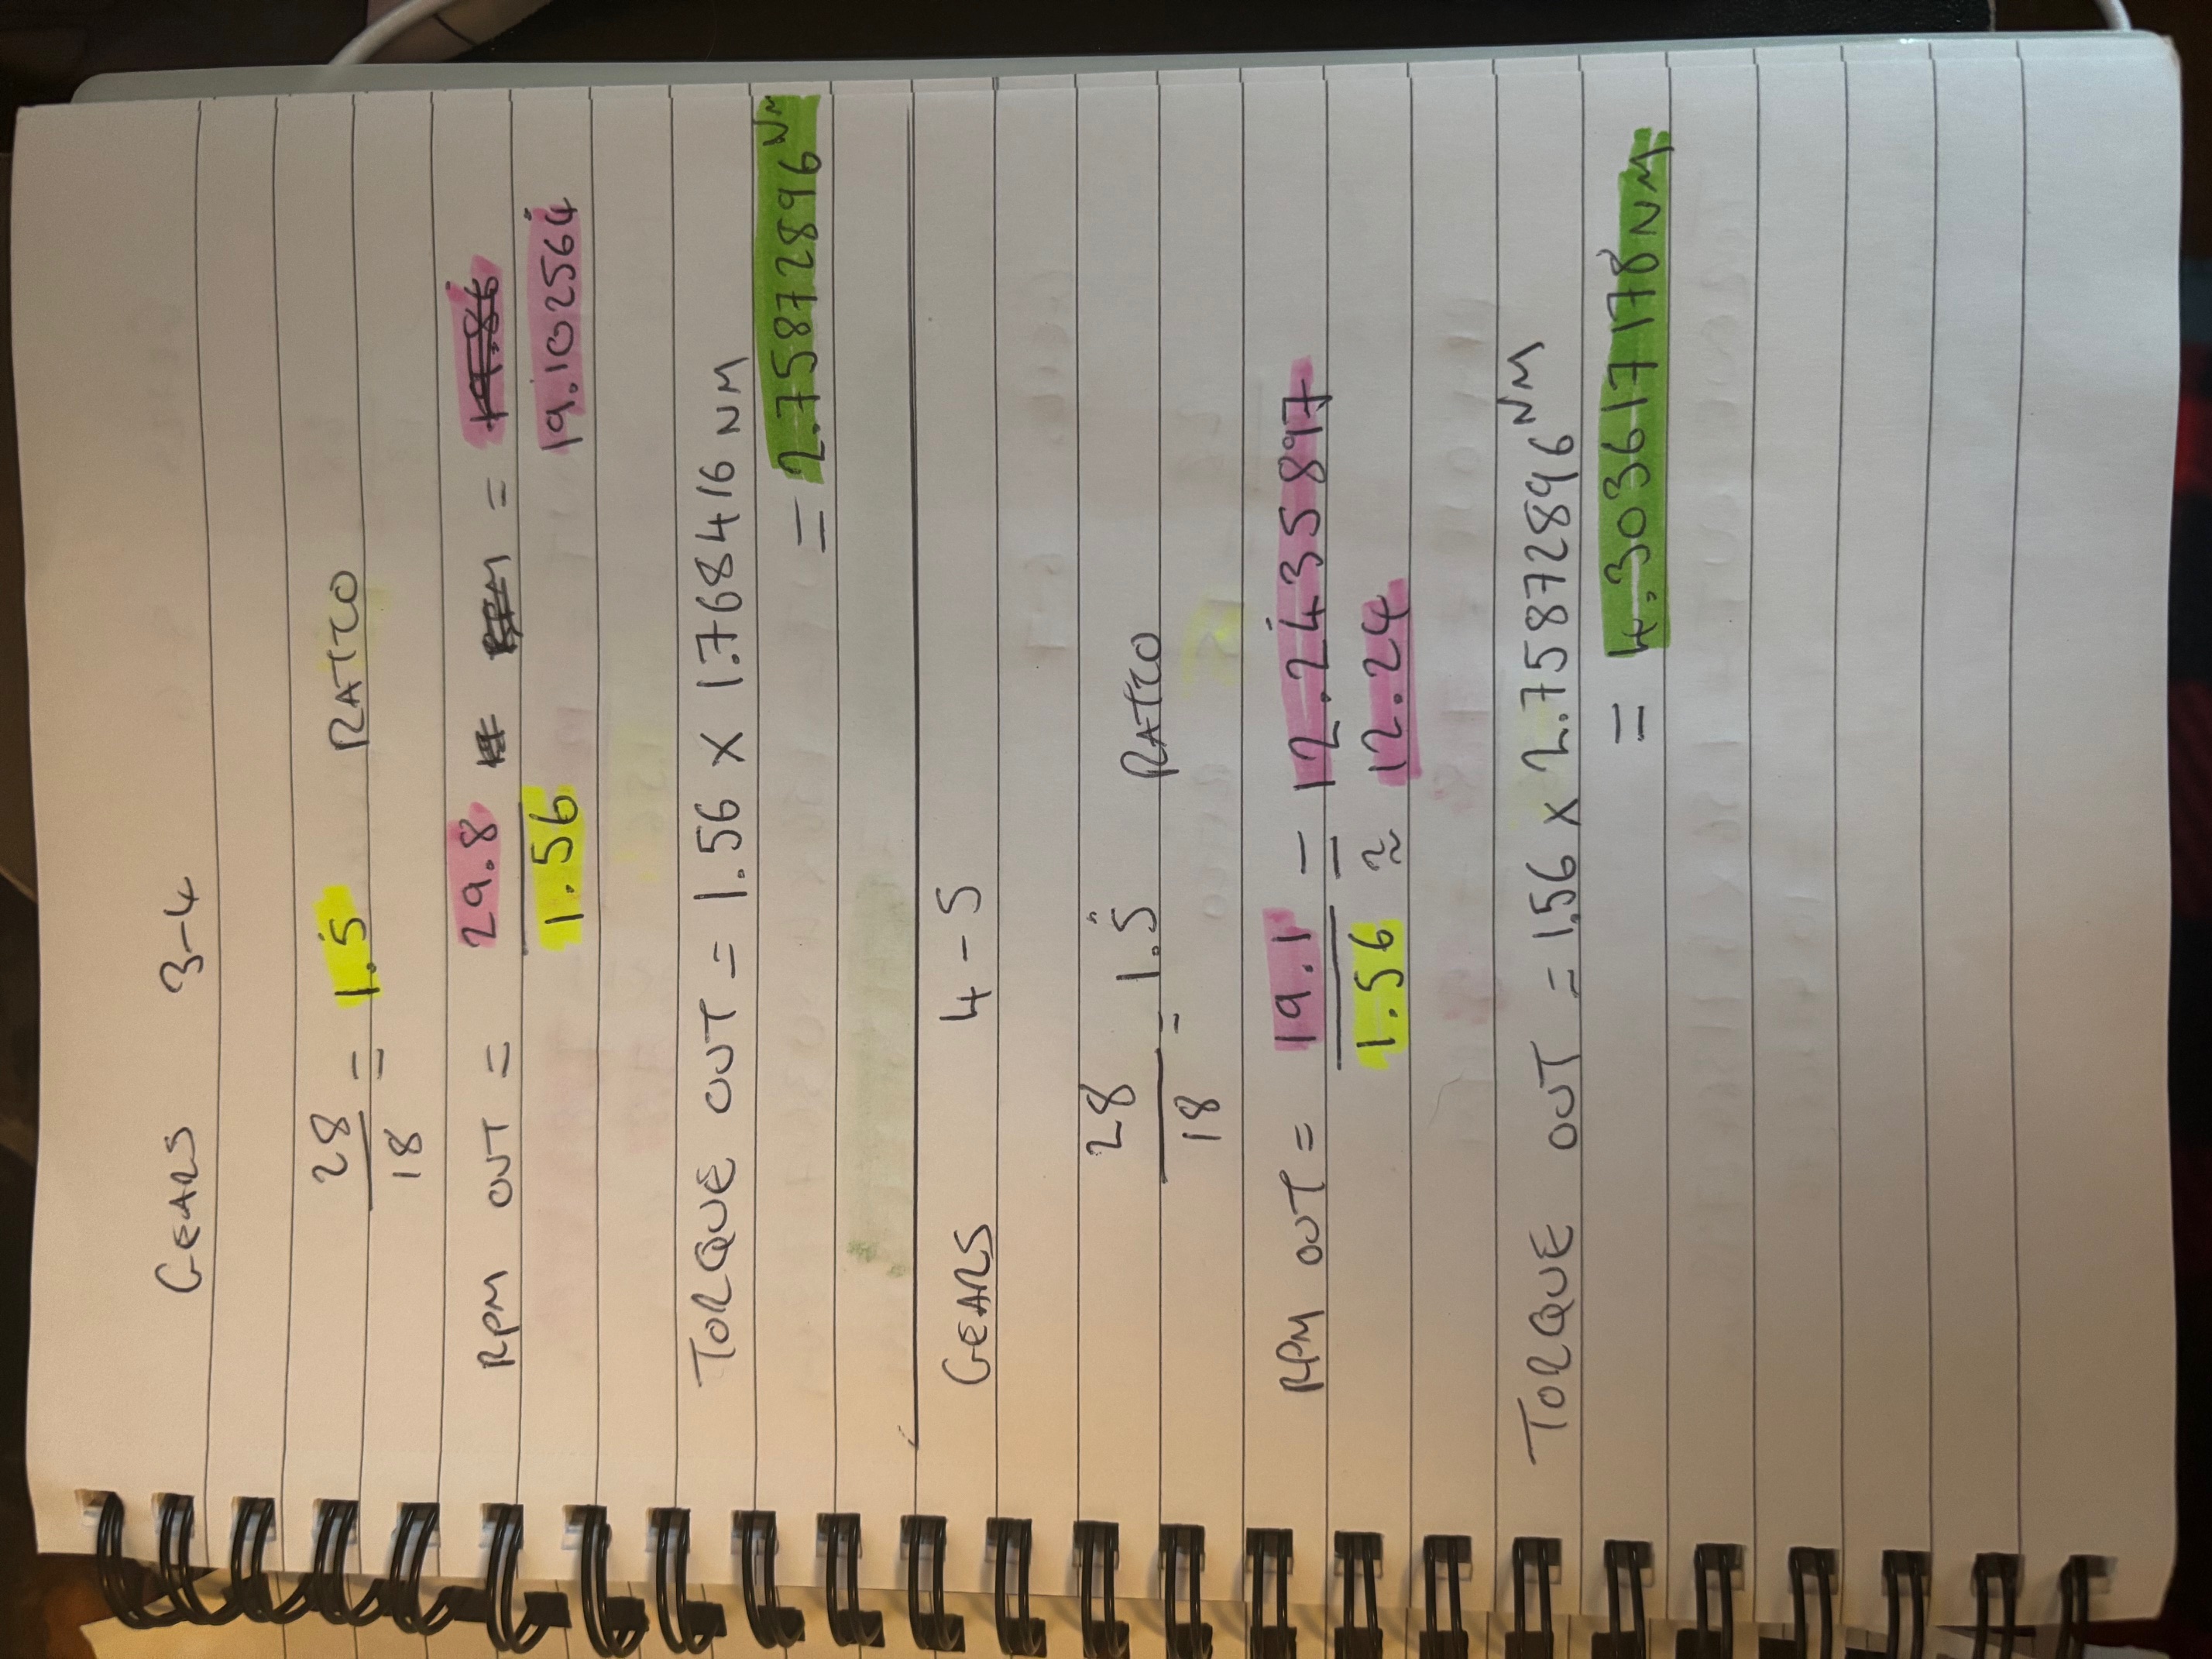 GEARS 3-4
28
18
= 1.5̇ RATIO
RPM OUT = 29.8
1.56
=
19.102564̇
TORQUE OUT = 1.56 × 1.768416 NM
= 2.75872896 NM
GEARS 4-5
28
18
= 1.5̈ RATIO
RPM OUT = 19.1
1.56
= 12.24̇35897
≈ 12.24
TORQUE OUT = 1.56 × 2.75872896 NM
= 4.303617178 NM